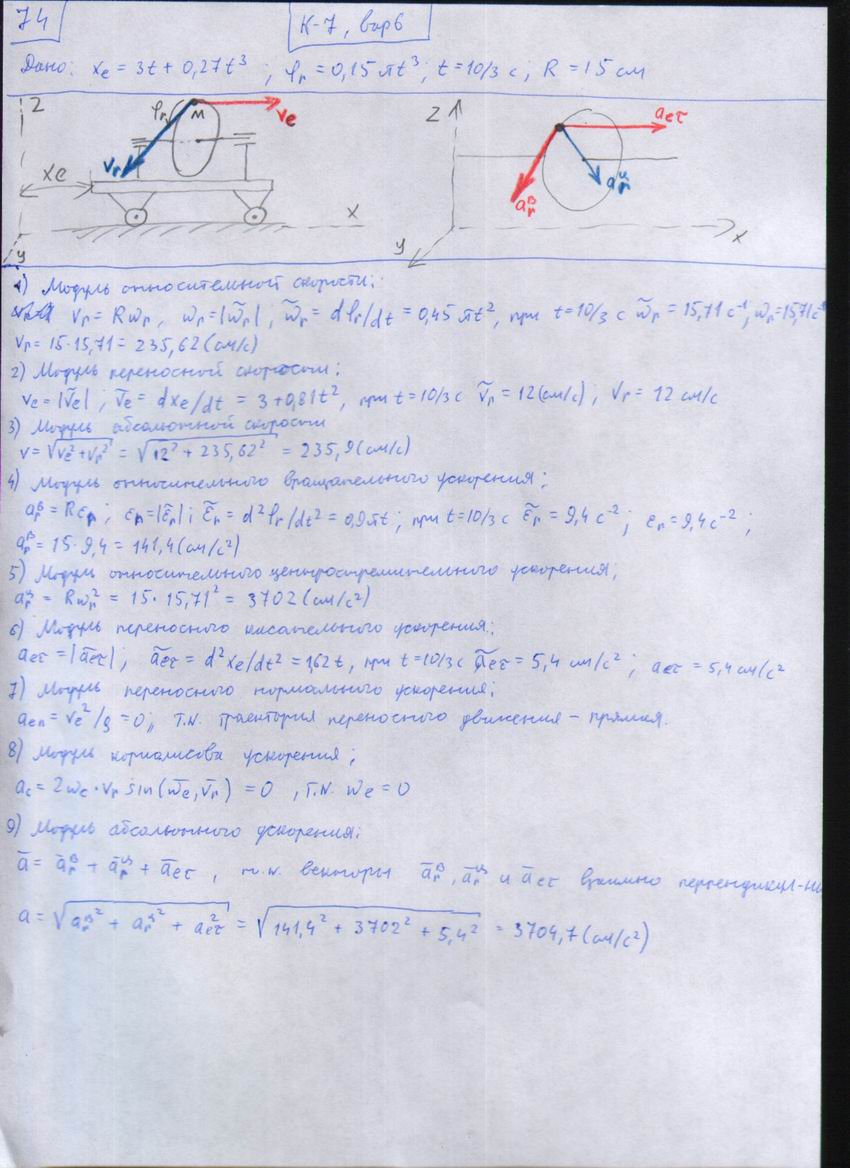 74
К-7, вар 6
Дано: xe = 3t + 0,27t³ ; φr = 0,15 πt³, t = 10/3 с ; R = 15 см
Z
φr
M
ve
vr
xe
x
y
Z
aeτ
aᵣᴮ
aᵣᶣ
x
y
1) Модуль относительной скорости:
vr = Rωr, ωr = |ω̃r| ; ω̃r = dφr/dt = 0,45 πt², при t = 10/3 с ω̃r = 15,71 с⁻¹, ωr = 15,71 с⁻¹
vr = 15·15,71 = 235,62 (см/с)
2) Модуль переносной скорости:
ve = |ṽe| ; ṽe = dxe/dt = 3 + 0,81t², при t = 10/3 с ṽr = 12 (см/с) ; vr = 12 см/с
3) Модуль абсолютной скорости
v = √(ve² + vr²) = √(12² + 235,62²) = 235,9 (см/с)
4) Модуль относительного вращательного ускорения:
aᵣᴮ = Rεr ; εr = |ε̃r| ; ε̃r = d²φr/dt² = 0,9πt ; при t = 10/3 с ε̃r = 9,4 с⁻² ; εr = 9,4 с⁻² ;
aᵣᴮ = 15·9,4 = 141,4 (см/с²)
5) Модуль относительного центростремительного ускорения,
aᵣᶣ = Rωr² = 15·15,71² = 3702 (см/с²)
6) Модуль переносного касательного ускорения:
aeτ = |ãeτ| ; ãeτ = d²xe/dt² = 1,62 t, при t = 10/3 с ãeτ = 5,4 см/с² ; aeτ = 5,4 см/с²
7) Модуль переносного нормального ускорения:
aen = ve²/ρ = 0, т.к. траектория переносного движения – прямая.
8) Модуль кориолисова ускорения:
ac = 2ωe · vr sin(ω̄e, v̄r) = 0 , т.к. ωe = 0
9) Модуль абсолютного ускорения:
ā = āᵣᴮ + āᵣᶣ + āeτ , т.к. векторы āᵣᴮ, āᵣᶣ и āeτ взаимно перпендикул-ны
a = √(aᵣᴮ² + aᵣᶣ² + aeτ²) = √(141,4² + 3702² + 5,4²) = 3704,7 (см/с²)